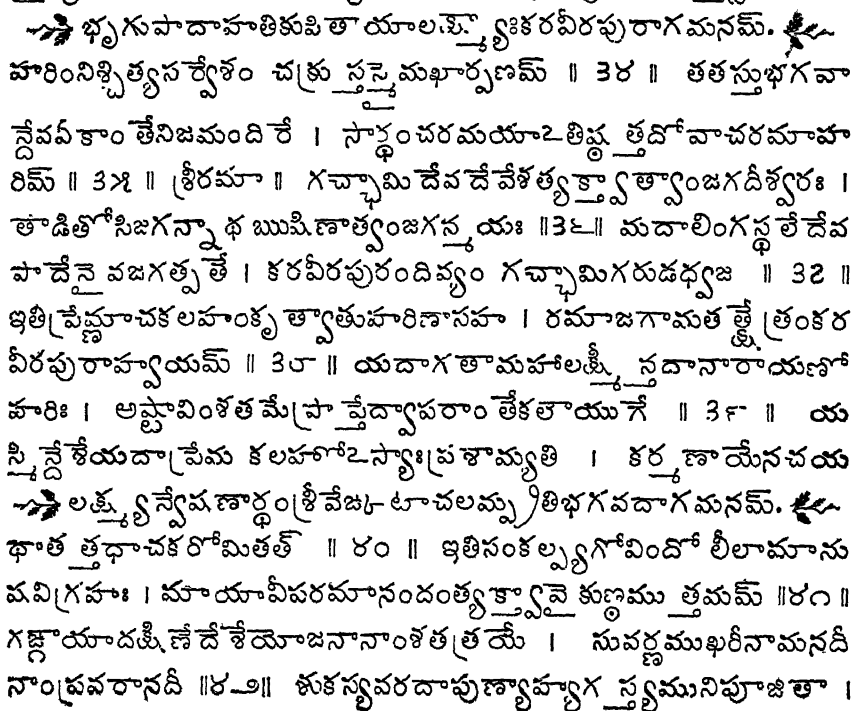 భృగుపాదాహతికుపితాయాలక్ష్మ్యాఃకరవీరపురాగమనమ్.
హరింనిశ్చిత్యసర్వేశం చక్రు స్తస్మైమఖార్పణమ్ ॥ ౩౪ ॥ తతస్తుభగవా
న్దేవఏకాం తేనిజమందిరే । సార్ధంచరమయాఽతిష్ఠ త్తదోవాచరమాహ
రిమ్ ॥ ౩౫ ॥ శ్రీరమా ॥ గచ్ఛామి దేవ దేవేశత్యక్త్వా త్వాంజగదీశ్వరః ।
తాడితోసిజగన్నా థ ఋషిణాత్వంజగన్మ యః ॥౩౬॥ మదాలింగస్థలే దేవ
పాదేనై వజగత్పతే । కరవీరపురందివ్యం గచ్ఛామిగరుడధ్వజ ॥ ౩౭ ॥
ఇతిప్రేమ్ణాచకలహంకృ త్వాతుహరిణాసహ । రమాజగామత త్క్షేత్రంకర
వీరపురాహ్వయమ్ ॥ ౩౮ ॥ యదాగతామహాలక్ష్మీ స్తదానారాయణో
హరిః । అష్టావింశతమేప్రా ప్తేద్వాపరాం తేకలౌయుగే ॥ ౩౯ ॥ య
స్మిన్దేశేయదాప్రేమ కలహోఽస్యాఃప్రశామ్యతి । కర్మణాయేనచయ
లక్ష్మ్యన్వేషణార్థంశ్రీవేఙ్కటాచలమ్ప్రతిభగవదాగమనమ్.
థాత త్తధాచకరోమితత్ ॥ ౪౦ ॥ ఇతిసంకల్ప్యగోవిందో లీలామాను
షవిగ్రహః । మాయావీపరమానందంత్యక్త్వావై కుణ్ఠము త్తమమ్ ॥౪౧॥
గఙ్గాయాదక్షిణేదేశేయోజనానాంశతత్రయే । సువర్ణముఖరీనామనదీ
నాంప్రవరానదీ ॥౪౨॥ శుకస్యవరదాపుణ్యాహ్యగ స్త్యమునిపూజితా ।